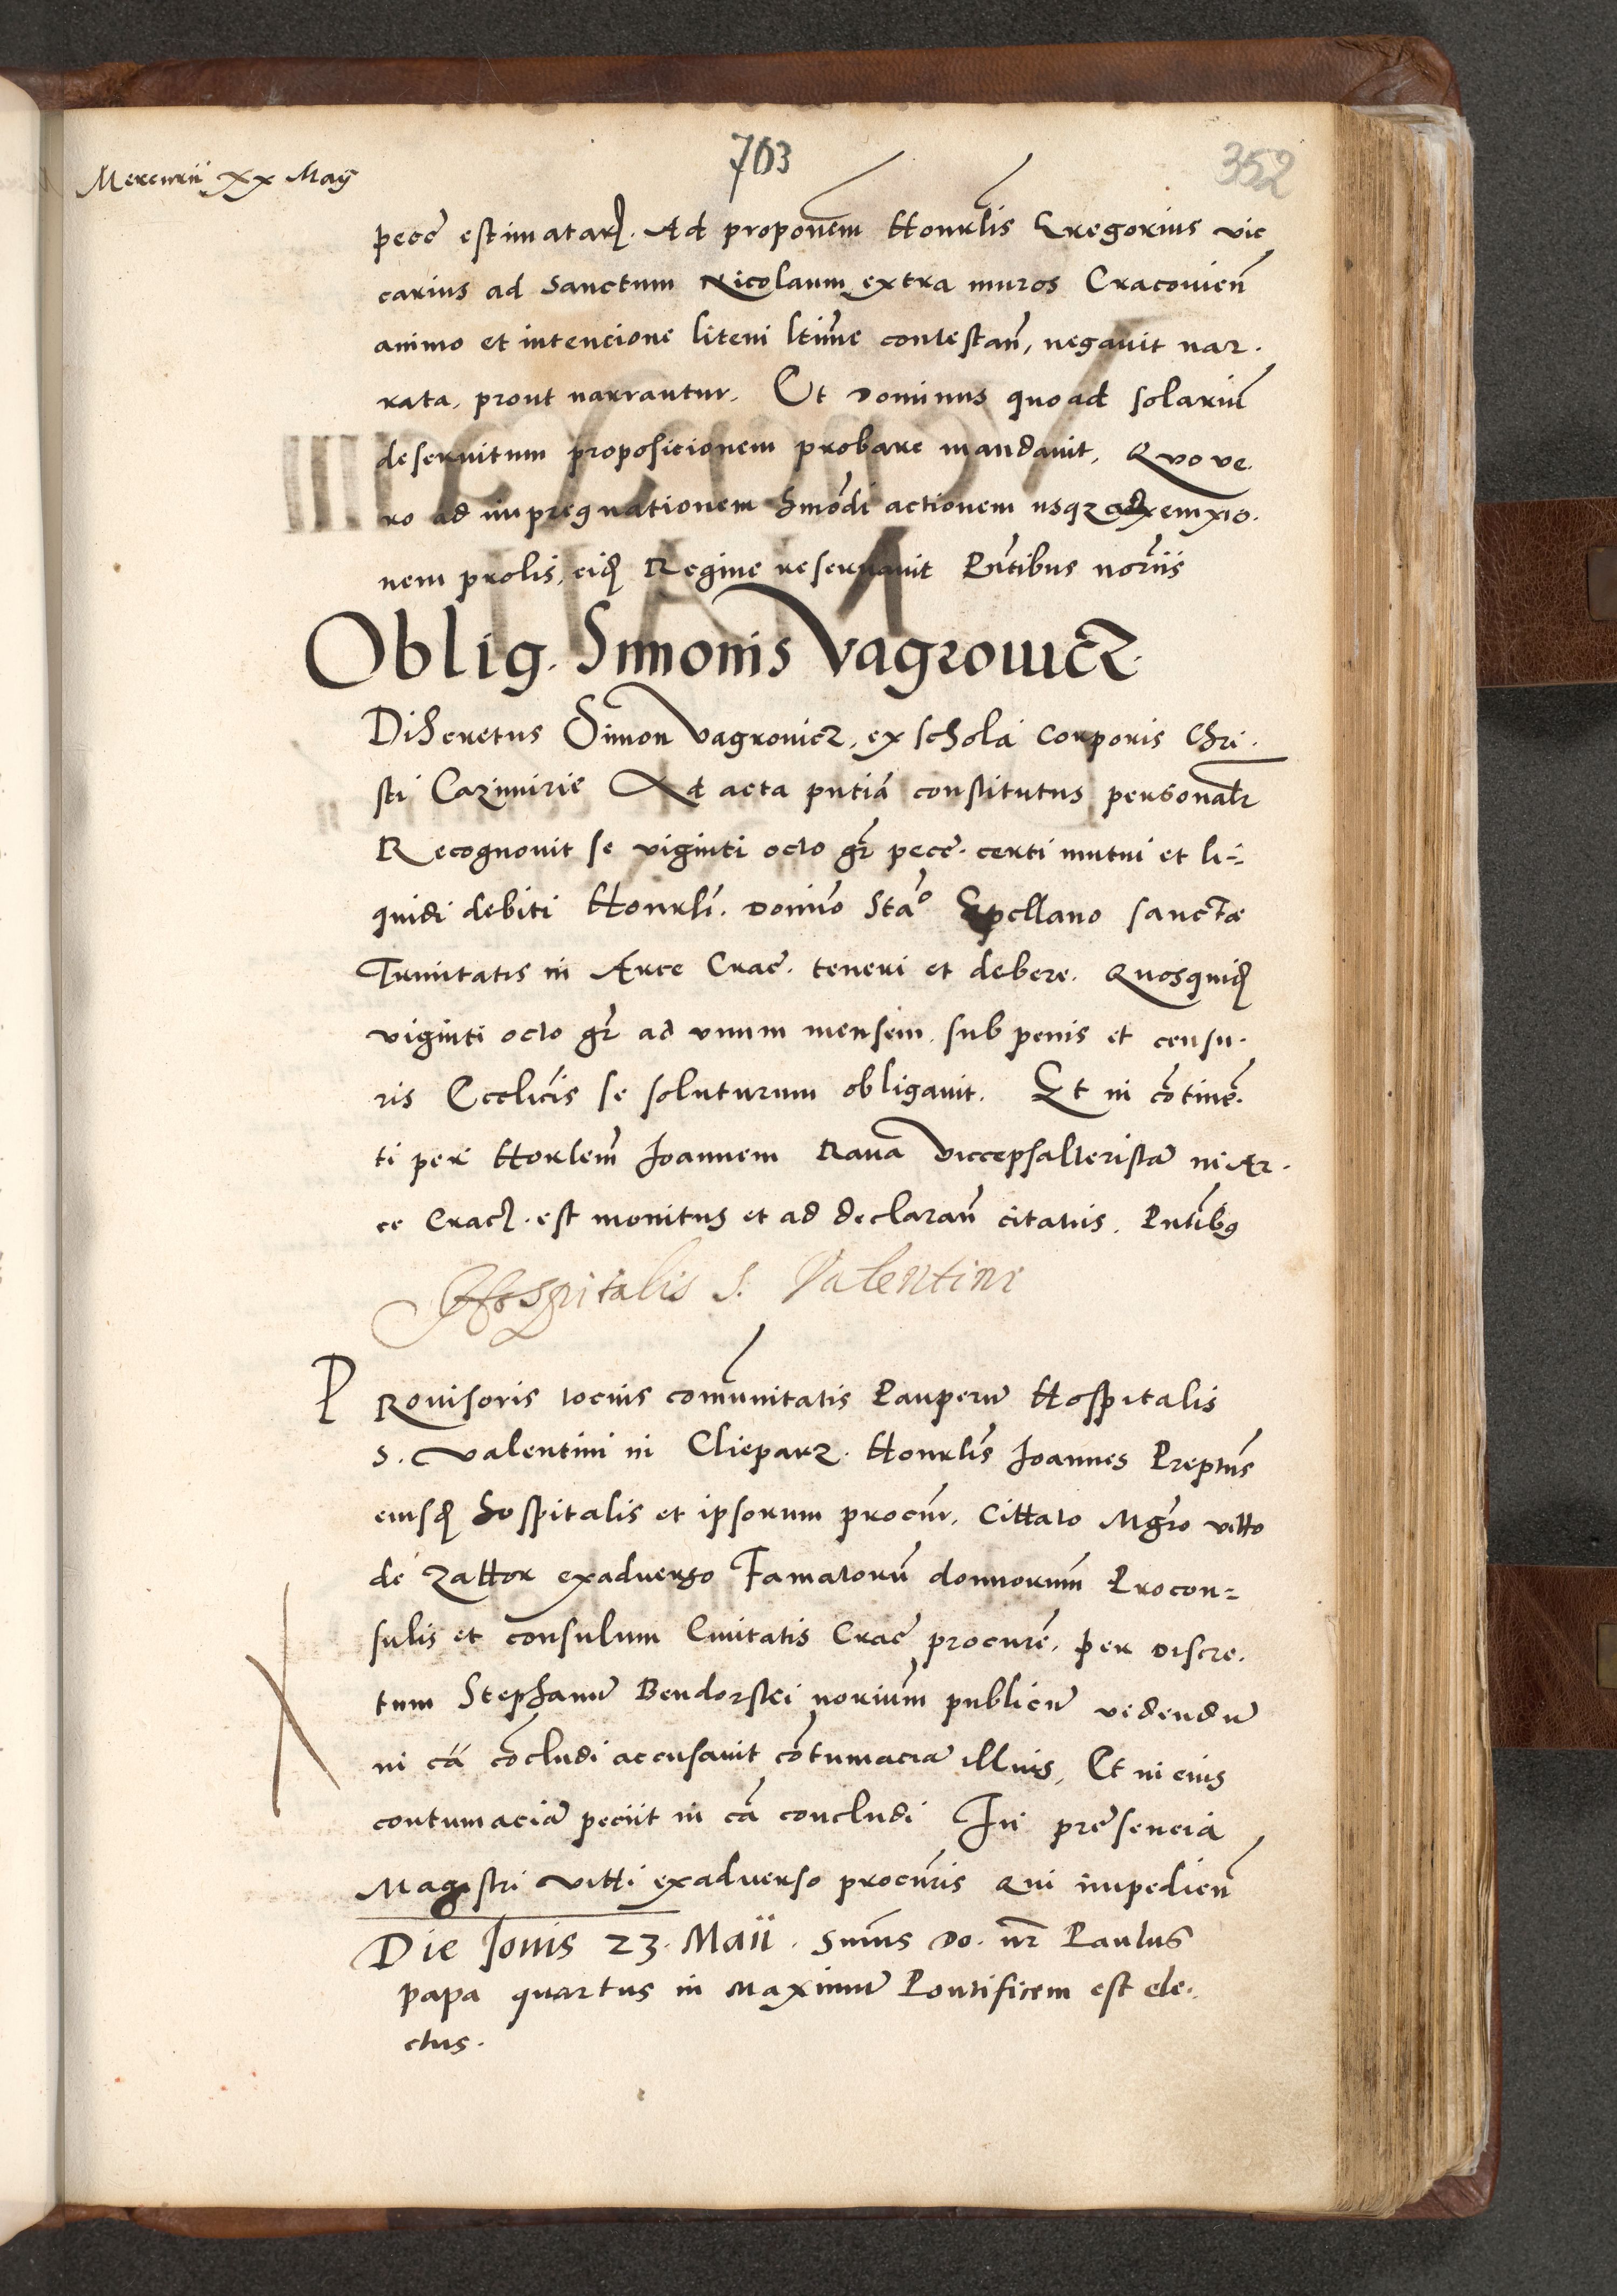 703
352
Mercurii xx Maÿ
pecc̄ estimatarꝝ. Ad proponēm Honrlis Gregorius vic
carius ad Sanctum Nicolaum extra muros Cracovień
animo et intencione litem ltīme contestań, negavit nar.
rata, prout narrantur. Et Dominus quoad solariū
deservitum proposicionem probare mandavit, Quo ve.
ro ad impregnationem hmōdi actionem usqz ad
nem prolis, eidꝫ Regine reservavit Pn̄tibus nor̄iis
Oblig. Simonis Vagrowicz.
Discretus Simon Vagrowicz, ex schola Corporis Chri.
sti Cazimirie Ad acta pn̄tiā constitutus personalr
Recognovit se viginti octo gr̄ pecc̄. certi mutui et li-
quidi debiti Honrli. domīo Stāo Capellano sanctæ
Trinitatis in Arce Crac̄. teneri et debere. Quosquidꝫ
viginti octo gr̄ ad vnum mensem, sub penis et censu.
ris Ecclīcis se soluturum obligavit. Et in cōtinē.
ti per Horlem̄ Joannem Rava Viccepsalteristā in Ar.
ce Cracꝫ. est monitus et ad declarań citatus. Pn̄tibꝰ
Hospitalis S. Valentini
P Rovisoris tocius com̄unitatis Pauperū Hospitalis
S. Valentini in Clieparz. Honrlis Joannes Preptūs
eiusdꝫ hospitalis et ipsorum procūr. Cittato Mgr̄o vitto
de Zattor exadverso Famatorū donnorum̄ Procon=
sulis et consulum Civitatis Crac̄ procurē. per discre.
tum Stephanū Bendorski noriūm publicū videndū
in cā cōcludi accusavit cōtumaciā illius, Et in eius
contumaciā peciit in cā concludi In presencia
Magistri vitti exadverso procūris qui impedień
Die Jovis 23. Maii. Smūs do. nr̄ Paulus
papa quartus in maximū Pontificem est ele.
ctus.